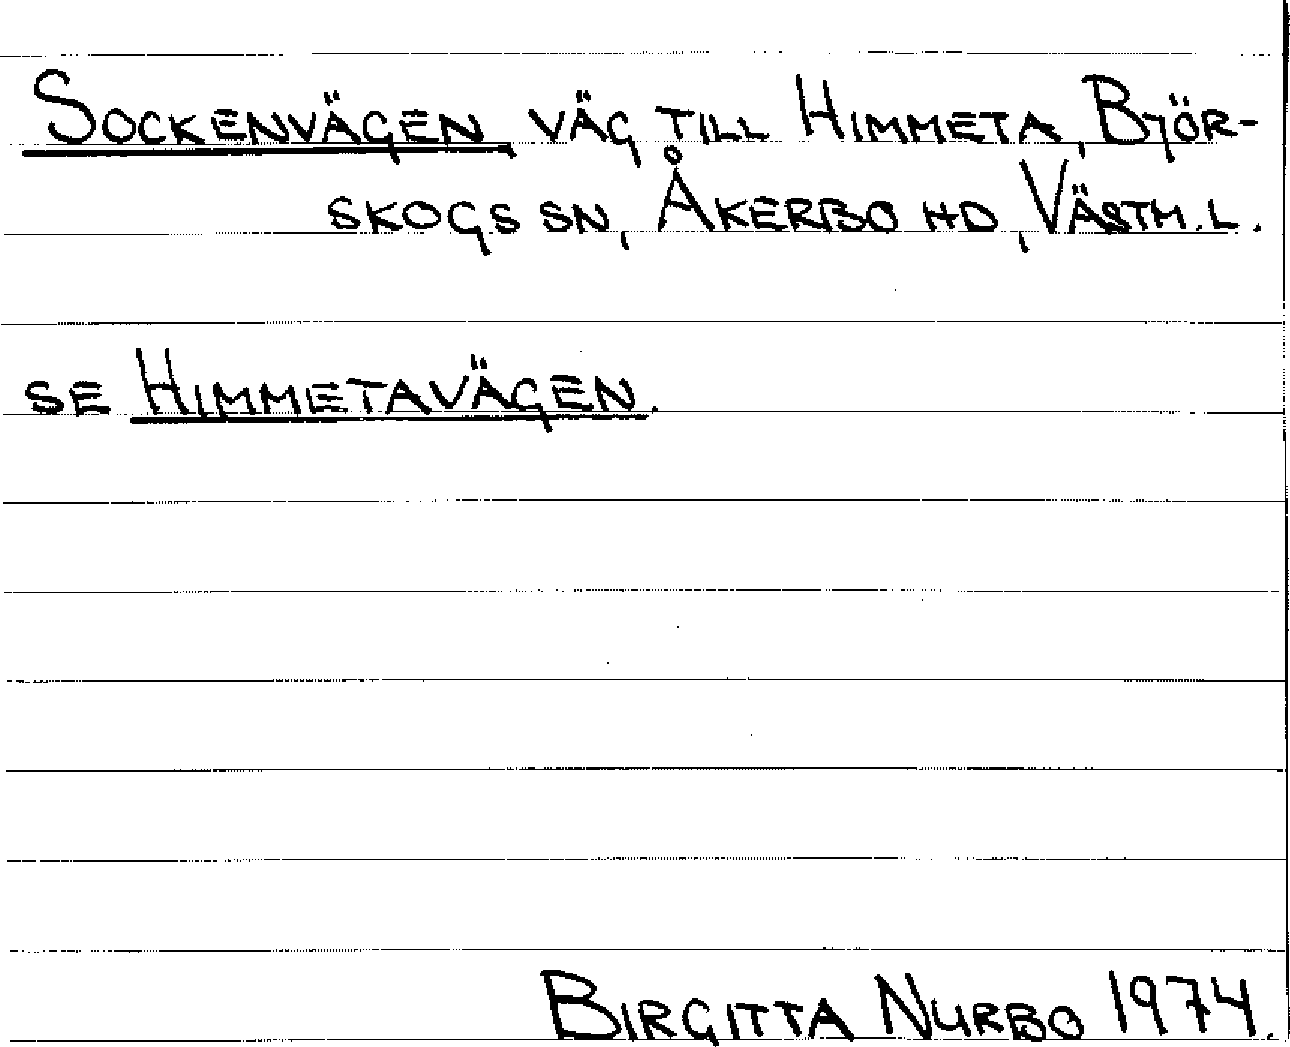 SOCKENVÄGEN VÄG TILL HIMMETA, BJÖR-
SKOGS SN, ÅKERBO HD, VÄSTM.L.
SE HIMMETAVÄGEN.
BIRGITTA NURBO 1974.